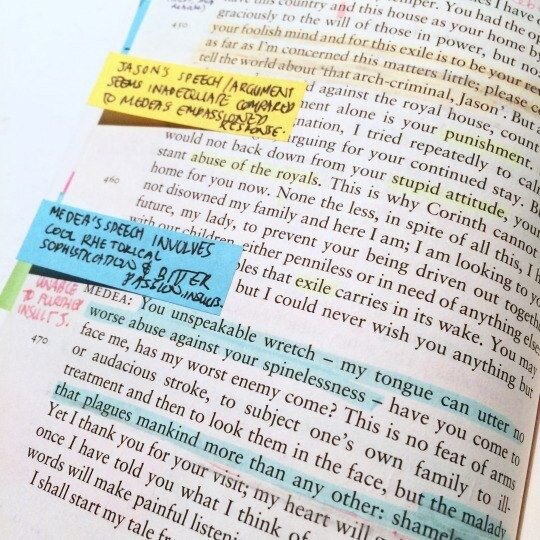 have this country and this house as your home b
graciously to the will of those in power, but no
450
your foolish mind and for this exile is to be your re
as far as I'm concerned this matters little; please ca
tell the world about 'that arch-criminal, Jason'. But a
JASON'S SPEECH/ARGUMENT
SEEMS INADEQUATE COMPARED
TO MEDEAS EMPASSIONED
RESPONSE.
d against the royal house, count
ment alone is your punishment.
nation, I tried repeatedly to calm
arguing for your continued stay. B
would not back down from your stupid attitude, your
stant abuse of the royals. This is why Corinth cannot
460
home for you now. None the less, in spite of all this, I h
not disowned my family and here I am; I am looking to yo
future, my lady, to prevent your being driven out togeth
with our children, either penniless or in need of anything else
MEDEA'S SPEECH INVOLVES
COOL RHETORICAL
SOPHISTICATION & BITTER
PASSION
bles that exile carries in its wake. You may
but I could never wish you anything but
UNABLE
TO FURTHER
INSULTS.
MEDEA: You unspeakable wretch – my tongue can utter no
worse abuse against your spinelessness – have you come to
470
face me, has my worst enemy come? This is no feat of arms
or audacious stroke, to subject one's own family to ill-
treatment and then to look them in the face, but the malady
that plagues mankind more than any other: shamele
Yet I thank you for your visit; my heart will g
once I have told you what I think of
words will make painful listen
I shall start my tale from